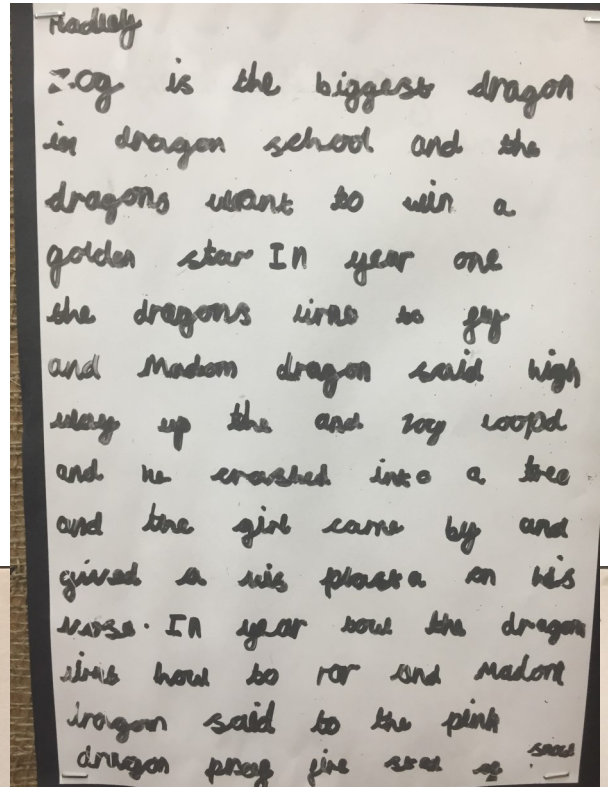 Hadley
Zog is the biggest dragon
in dragon school and the
dragons want to win a
golden star In year one
the dragons lirns to fly
and Madom dragon said high
way up the and zog loopd
and he crashed into a tree
and the girl came by and
gived a plasta on his
In year tow the dragon
how to ror and Madom
dragon said to the pink
dragon fire